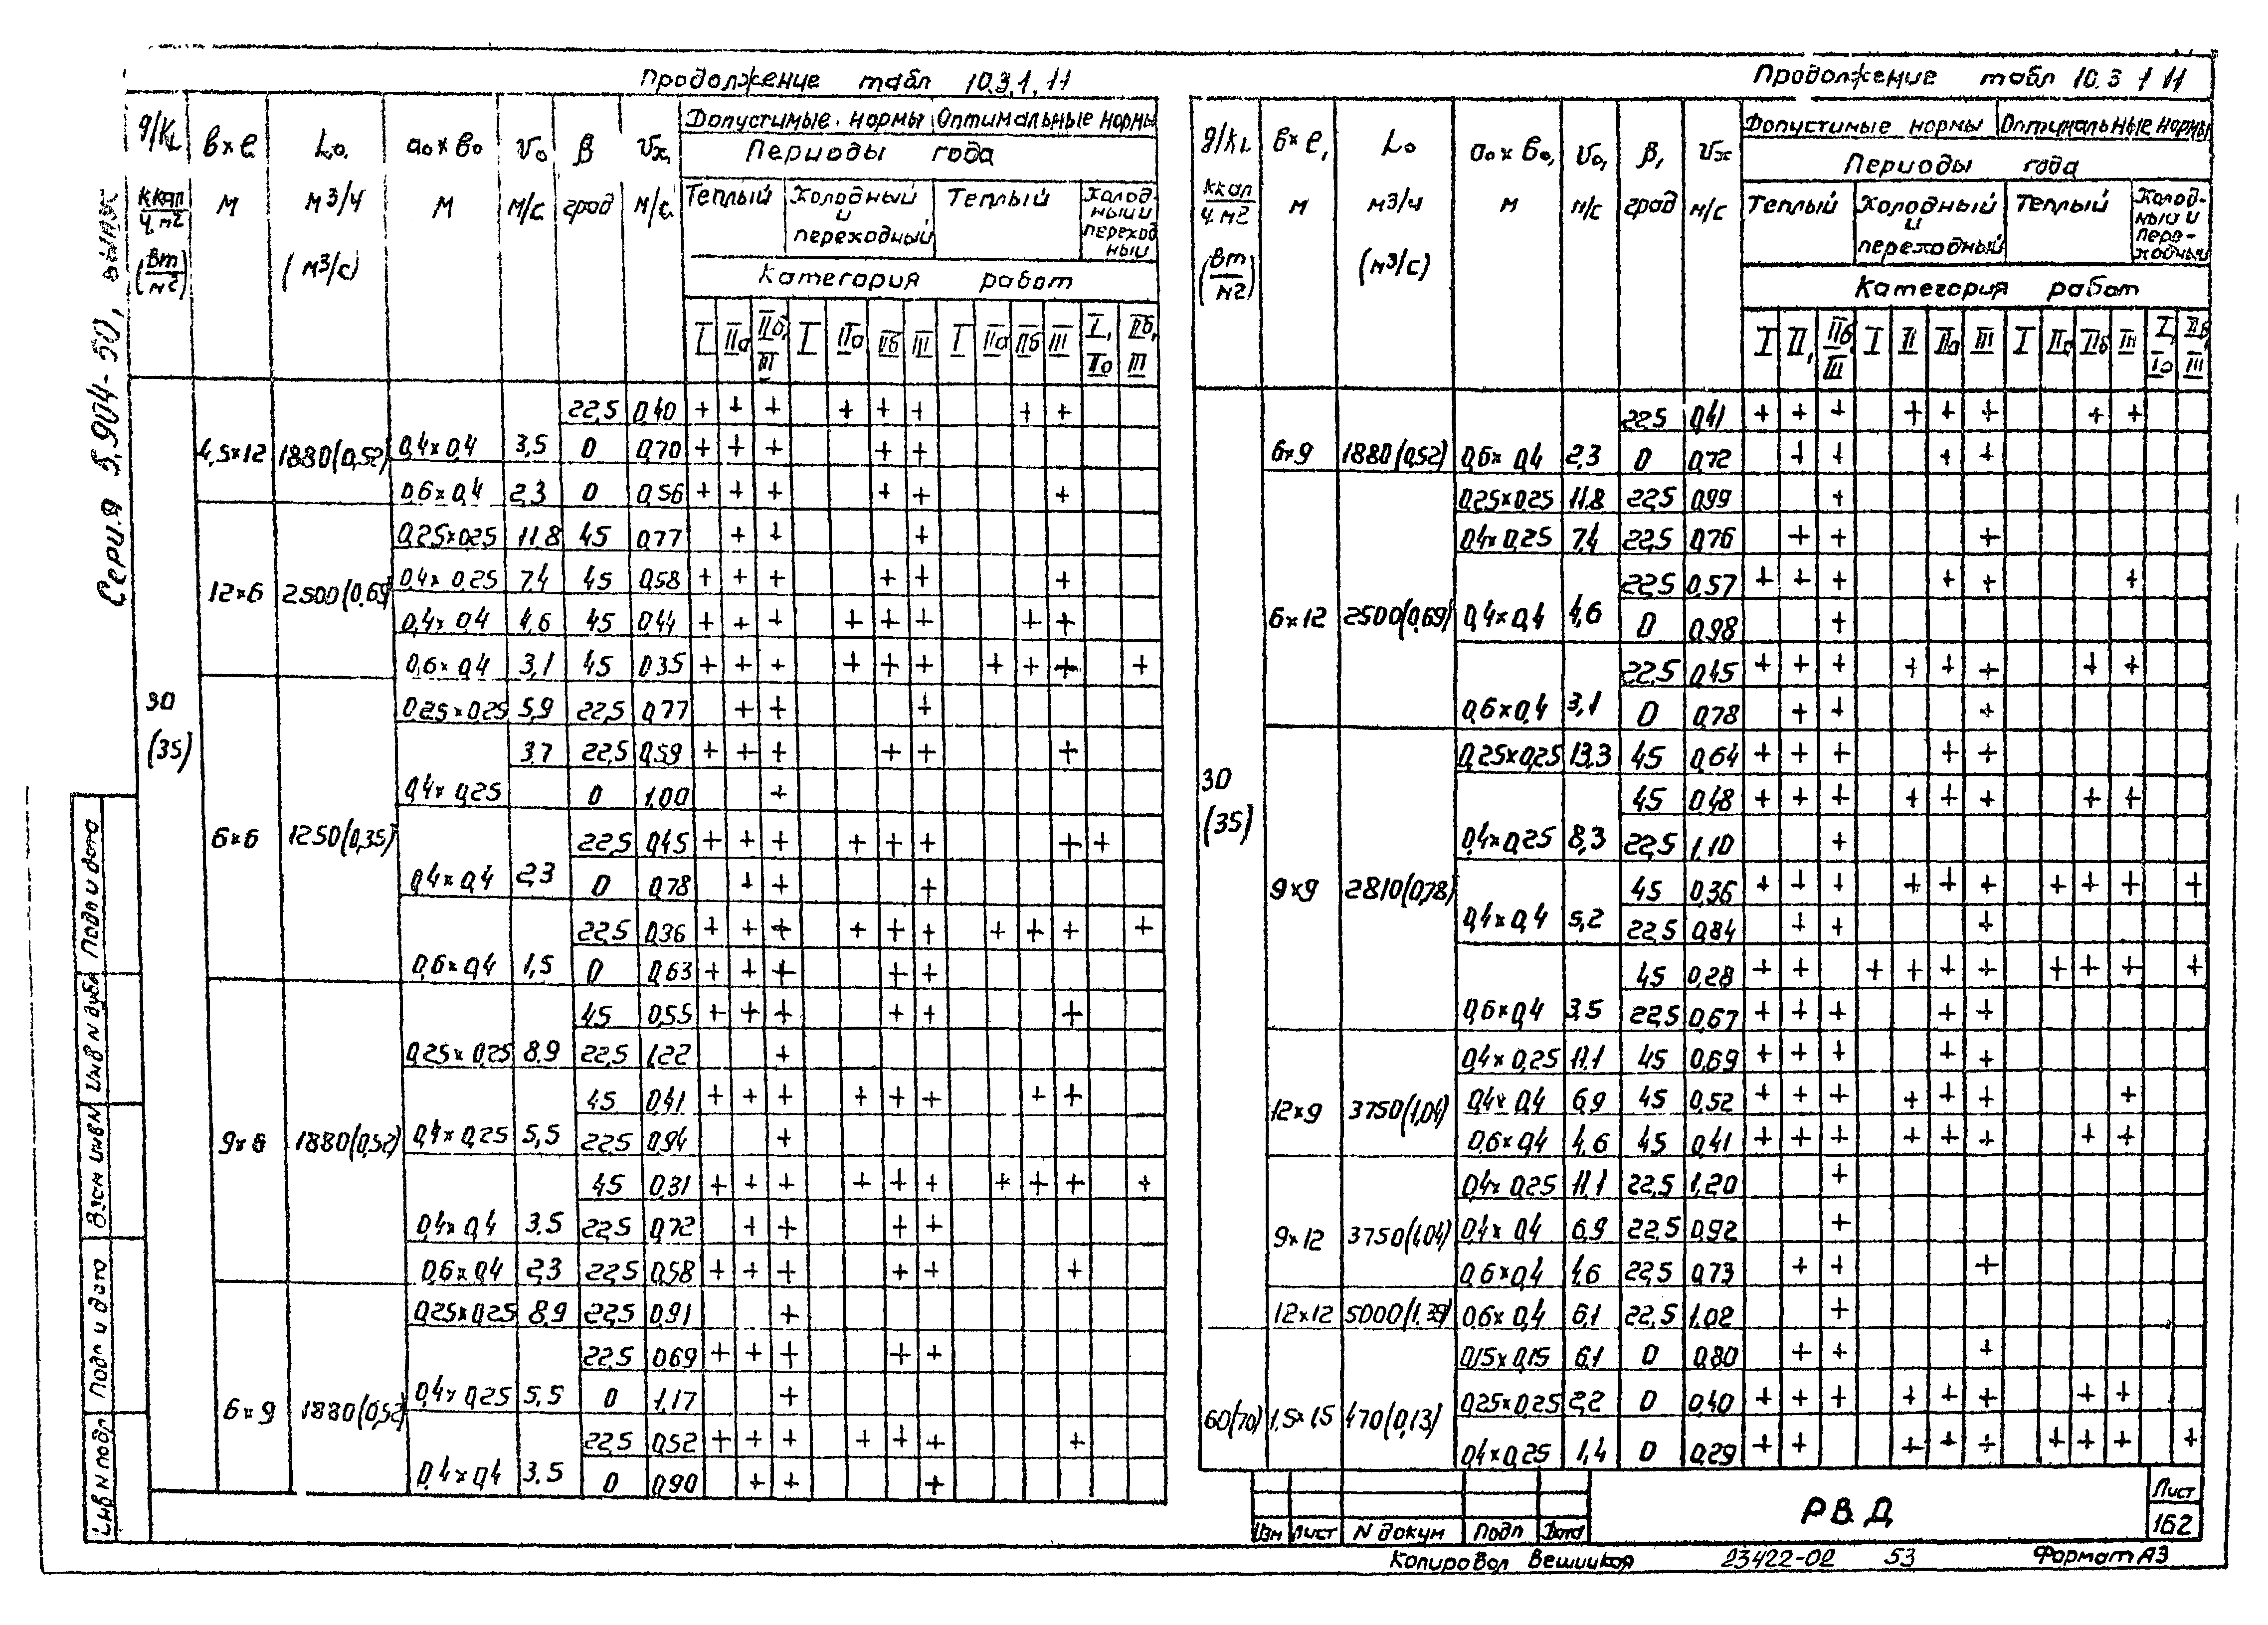 Серия 5.904-50, выпуск
Продолжение табл 10.3.1.11
q/KL в×е Lо, aо×во vо β vх, Допустимые нормы Оптимальные нормы
Периоды года
ккал/ч.м2 м м3/ч м м/с град м/с Теплый Холодный и переходный Теплый Холодный и переходный
(Вт/м2) (м3/с)
Категория работ
I IIа IIб, III I IIа IIб III I IIа IIб III I, IIа IIб, III
30 (35)
4,5×12 1880(0,52) 0,4×0,4 3,5 22,5 0,40 + + + + + + + +
0 0,70 + + + + +
0,6×0,4 2,3 0 0,56 + + + + + +
12×6 2500(0,69) 0,25×0,25 11,8 45 0,77 + + +
0,4×0,25 7,4 45 0,58 + + + + + +
0,4×0,4 4,6 45 0,44 + + + + + + + +
0,6×0,4 3,1 45 0,35 + + + + + + + + + +
6×6 1250(0,35) 0,25×0,25 5,9 22,5 0,77 + + +
0,4×0,25 3,7 22,5 0,59 + + + + + +
0 1,00 +
0,4×0,4 2,3 22,5 0,45 + + + + + + + +
0 0,78 + + +
0,6×0,4 1,5 22,5 0,36 + + + + + + + + + +
0 0,63 + + + + +
9×6 1880(0,52) 0,25×0,25 8,9 45 0,55 + + + + + +
22,5 1,22 +
0,4×0,25 5,5 45 0,41 + + + + + + + +
22,5 0,94 +
0,4×0,4 3,5 45 0,31 + + + + + + + + + +
22,5 0,72 + + + +
0,6×0,4 2,3 22,5 0,58 + + + + + +
6×9 1880(0,52) 0,25×0,25 8,9 22,5 0,91 +
0,4×0,25 5,5 22,5 0,69 + + + + +
0 1,17 +
0,4×0,4 3,5 22,5 0,52 + + + + + + +
0 0,90 + + +
Продолжение табл 10.3 1 11
q/KL в×е, Lо aо×во, vо, β, vх Допустимые нормы Оптимальные нормы
Периоды года
ккал/ч.м2 м м3/ч м м/с град м/с Теплый Холодный и переходный Теплый Холодный и переходный
(Вт/м2) (м3/с)
Категория работ
I II, IIб III I II IIа III I IIа IIб III I, Iа IIб, III
30 (35)
6×9 1880(0,52) 0,6×0,4 2,3 22,5 0,41 + + + + + + + +
0 0,72 + + + +
6×12 2500(0,69) 0,25×0,25 11,8 22,5 0,99 +
0,4×0,25 7,4 22,5 0,76 + + +
0,4×0,4 4,6 22,5 0,57 + + + + + +
0 0,98 +
0,6×0,4 3,1 22,5 0,45 + + + + + + + +
0 0,78 + + +
9×9 2810(0,78) 0,25×0,25 13,3 45 0,64 + + + + +
0,4×0,25 8,3 45 0,48 + + + + + + + +
22,5 1,10 +
0,4×0,4 5,2 45 0,36 + + + + + + + + + +
22,5 0,84 + + +
0,6×0,4 3,5 45 0,28 + + + + + + + + + +
22,5 0,67 + + + + +
12×9 3750(1,04) 0,4×0,25 11,1 45 0,69 + + + + +
0,4×0,4 6,9 45 0,52 + + + + + + +
0,6×0,4 4,6 45 0,41 + + + + + + + +
9×12 3750(1,04) 0,4×0,25 11,1 22,5 1,20 +
0,4×0,4 6,9 22,5 0,92 +
0,6×0,4 4,6 22,5 0,73 + + +
12×12 5000(1,39) 0,6×0,4 6,1 22,5 1,02 +
60(70) 1,5×1,5 470(0,13) 0,15×0,15 6,1 0 0,80 + + +
0,25×0,25 2,2 0 0,40 + + + + + + + +
0,4×0,25 1,4 0 0,29 + + + + + + + + +
Изм Лист N докум Подп Дата РВ.Д Лист 162
Копировал Вешицкая 23422-02 53 Формат А3
Инв N подл Подп и дата Взам инв N Инв N дубл Подп и дата